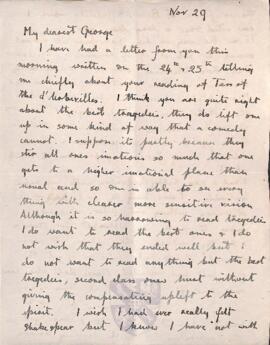 Nov 29
My dearest George
I have had a letter from you this
morning written on the 24th & 25th telling
me chiefly about your reading of Tess of
the d'Urbervilles. I think you are quite right
about the best tragedies, they do lift one
up in some kind of way that a comedy
cannot. I suppose its partly because they
stir all ones emotions so much that one
gets to a higher emotional plane than
usual and so one is able to see every
thing with clearer more sensitive vision
Although it is so harrowing to read tragedies
I do want to read the best ones & I do
not wish that they ended well but I
do not want to read anything but the best
tragedies, second class ones hurt without
giving the compensating uplift to the
spirit. I wish I had ever really felt
Shakespear but I know I have not with